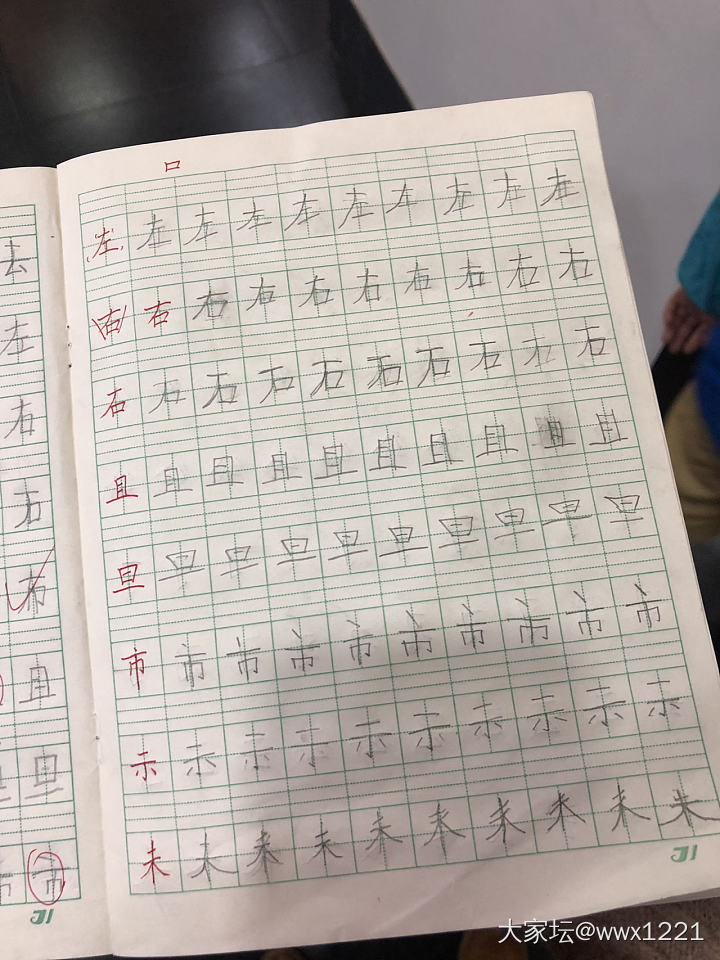 口
去
左
右
布
且
旦
市
左左左左左左左左左左
右右右右右右右右右右
石石石石石石石石石石
且且且且且且且且且且
旦旦旦旦旦旦旦旦旦旦
市市市市市市市市市市
示示示示示示示示示示
未未未未未未未未未未
大家坛@wwx1221